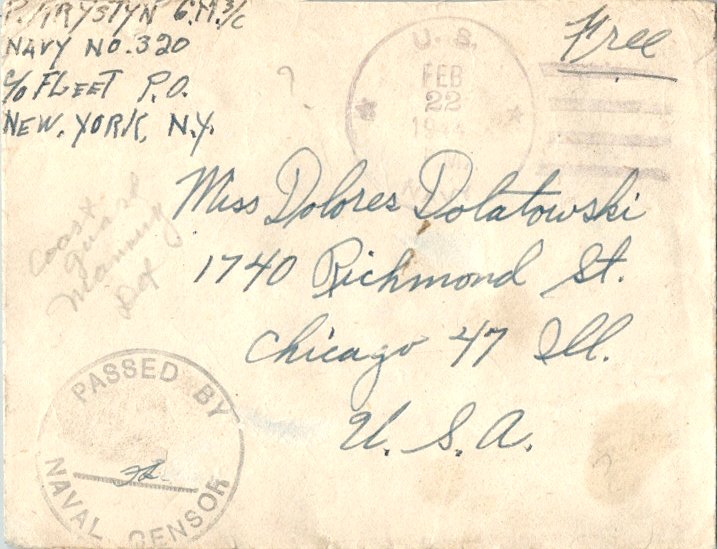 P. KRYSTYN G.M.3/c
NAVY NO. 320
C/O FLEET P.O.
NEW. YORK, N.Y.
Free
U. S.
FEB
22
1944
Miss Dolores Dolatowski
1740 Richmond St.
Chicago 47 Ill.
U. S. A.
Coast
guard
Manning
Det
PASSED BY
NAVAL CENSOR